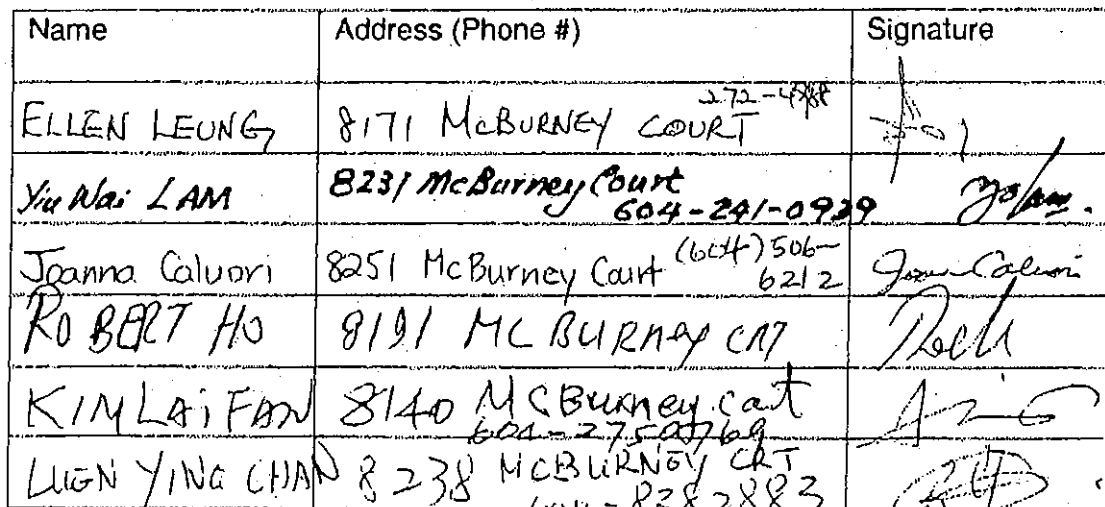 Name Address (Phone #) Signature
ELLEN LEUNG 8171 McBURNEY COURT 272-4788
Yiu Wai LAM 8231 McBurney Court
604-241-0939
Joanna Caluori 8251 McBurney Court (604) 506-
6212
ROBERT HO 8191 MC BURNEY CRT
KIM LAI FAN 8140 MCBurney Cart
604-2750769
LUEN YING CHAN 8238 MCBURNEY CRT
8282883